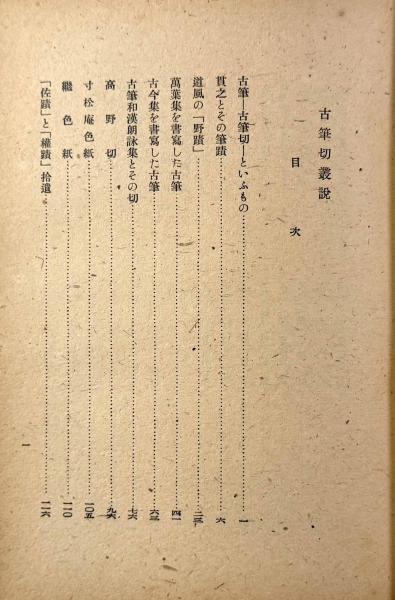 古筆切叢説
目次
古筆―古筆切―といふもの……一
貫之とその筆蹟……六
道風の「野蹟」……二三
萬葉集を書寫した古筆……四一
古今集を書寫した古筆……六三
古筆和漢朗詠集とその切……七六
高野切……九六
寸松庵色紙……一〇五
繼色紙……一一〇
「佐蹟」と「權蹟」拾遺……一一六
一